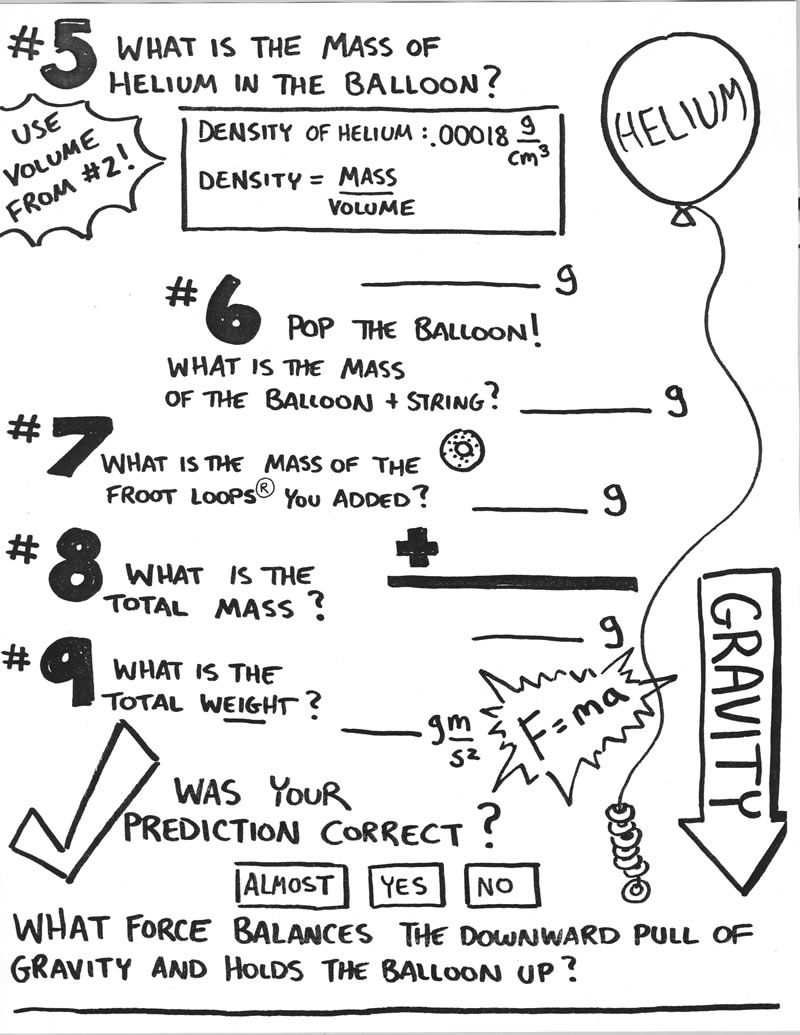 #5 WHAT IS THE MASS OF
HELIUM IN THE BALLOON?
USE
VOLUME
FROM #2!
DENSITY OF HELIUM: .00018 g/cm³
DENSITY = MASS
VOLUME
HELIUM
_____ g
#6 POP THE BALLOON!
WHAT IS THE MASS
OF THE BALLOON + STRING? _____ g
#7 WHAT IS THE MASS OF THE
FROOT LOOPS® YOU ADDED? _____ g
+
#8 WHAT IS THE
TOTAL MASS?
_____ g
#9 WHAT IS THE
TOTAL WEIGHT?
_____ gm/s²
F=ma
GRAVITY
WAS YOUR
PREDICTION CORRECT?
ALMOST YES NO
WHAT FORCE BALANCES THE DOWNWARD PULL OF
GRAVITY AND HOLDS THE BALLOON UP?